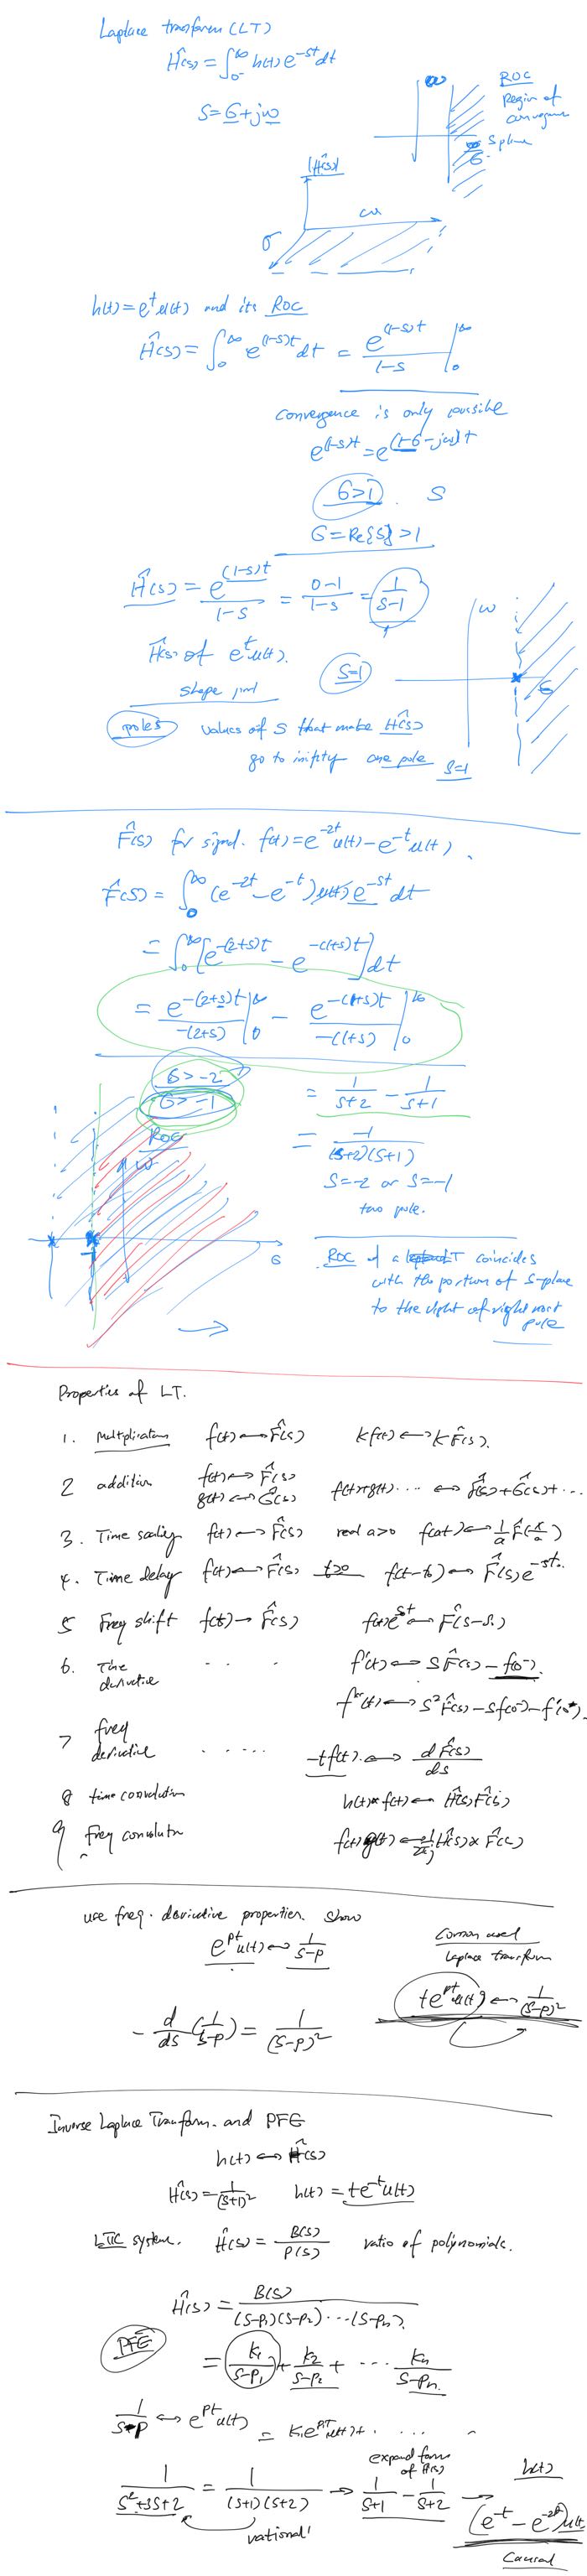 Laplace transform (LT)
Ĥ(s) = ∫₀₋^∞ h(t) e^{-st} dt
S = σ + jω
ω
ROC
Region of
convergence
S plane
σ
|Ĥ(s)|
ω
σ
h(t) = e^t u(t) and its ROC
Ĥ(s) = ∫₀^∞ e^{(1-s)t} dt = e^{(1-s)t}/(1-s) |₀^∞
Convergence is only possible
e^{(1-s)t} = e^{(1-σ-jω)t}
σ>1. S
σ = Re{S} > 1
Ĥ(s) = e^{(1-s)t}/(1-s) = (0-1)/(1-s) = 1/(s-1)
Ĥ(s) of e^t u(t). S=1
ω
σ
poles values of S that make Ĥ(s)
go to infity one pole S=1
F̂(s) for signal. f(t) = e^{-2t} u(t) - e^{-t} u(t).
F̂(s) = ∫₀^∞ (e^{-2t} - e^{-t}) u(t) e^{-st} dt
= ∫₀^∞ [e^{-(2+s)t} - e^{-(1+s)t}] dt
= e^{-(2+s)t}/-(2+s) |₀^∞ - e^{-(1+s)t}/-(1+s) |₀^∞
σ > -2
σ > -1
= 1/(s+2) - 1/(s+1)
ROC
ω
= -1/((s+2)(s+1))
S=-2 or S=-1
two pole.
σ
ROC of a LT coincides
with the portion of s-plane
to the right of right most
pole
Properties of LT.
1. Multiplication f(t) ↔ F̂(s) Kf(t) ↔ KF̂(s).
2 addition f(t) ↔ F̂(s)
g(t) ↔ Ĝ(s) f(t)+g(t)···· ↔ F̂(s)+Ĝ(s)+···
3. Time scaling f(t) ↔ F̂(s) real a>0 f(at) ↔ 1/a F̂(s/a)
4. Time delay f(t) ↔ F̂(s) t≥0 f(t-t₀) ↔ F̂(s) e^{-st₀}
5 Freq shift f(t) → F̂(s) f(t)e^{s₀t} ↔ F̂(s-s₀)
6. Time
derivative .. .. f'(t) ↔ sF̂(s) - f(0⁻).
f''(t) ↔ s²F̂(s) - sf(0⁻) - f'(0⁻).
7 freq
derivative ..... -tf(t) ↔ dF̂(s)/ds
8 time convolution h(t)*f(t) ↔ Ĥ(s)F̂(s)
9 Freq convolutn
use freq. derivative properties. show
e^{pt} u(t) ↔ 1/(s-p)
Common used
Laplace transform
te^{pt} u(t) ↔ 1/(s-p)²
- d/ds (1/(s-p)) = 1/(s-p)²
Inverse Laplace Transform. and PFE
h(t) ↔ Ĥ(s)
Ĥ(s) = 1/(s+1)² h(t) = te^{-t} u(t)
LTIC system. Ĥ(s) = B(s)/P(s) ratio of polynomials.
Ĥ(s) = B(s)/((s-p₁)(s-p₂)···(s-pₙ))
PFE
= k₁/(s-p₁) + k₂/(s-p₂) + ··· kₙ/(s-pₙ)
1/(s-p) ↔ e^{pt} u(t) = k₁e^{p₁t} u(t) + ···
expand form
of Ĥ(s)
h(t)
1/(s²+3s+2) = 1/((s+1)(s+2)) → 1/(s+1) - 1/(s+2) → (e^{-t} - e^{-2t}) u(t)
rational
Causal